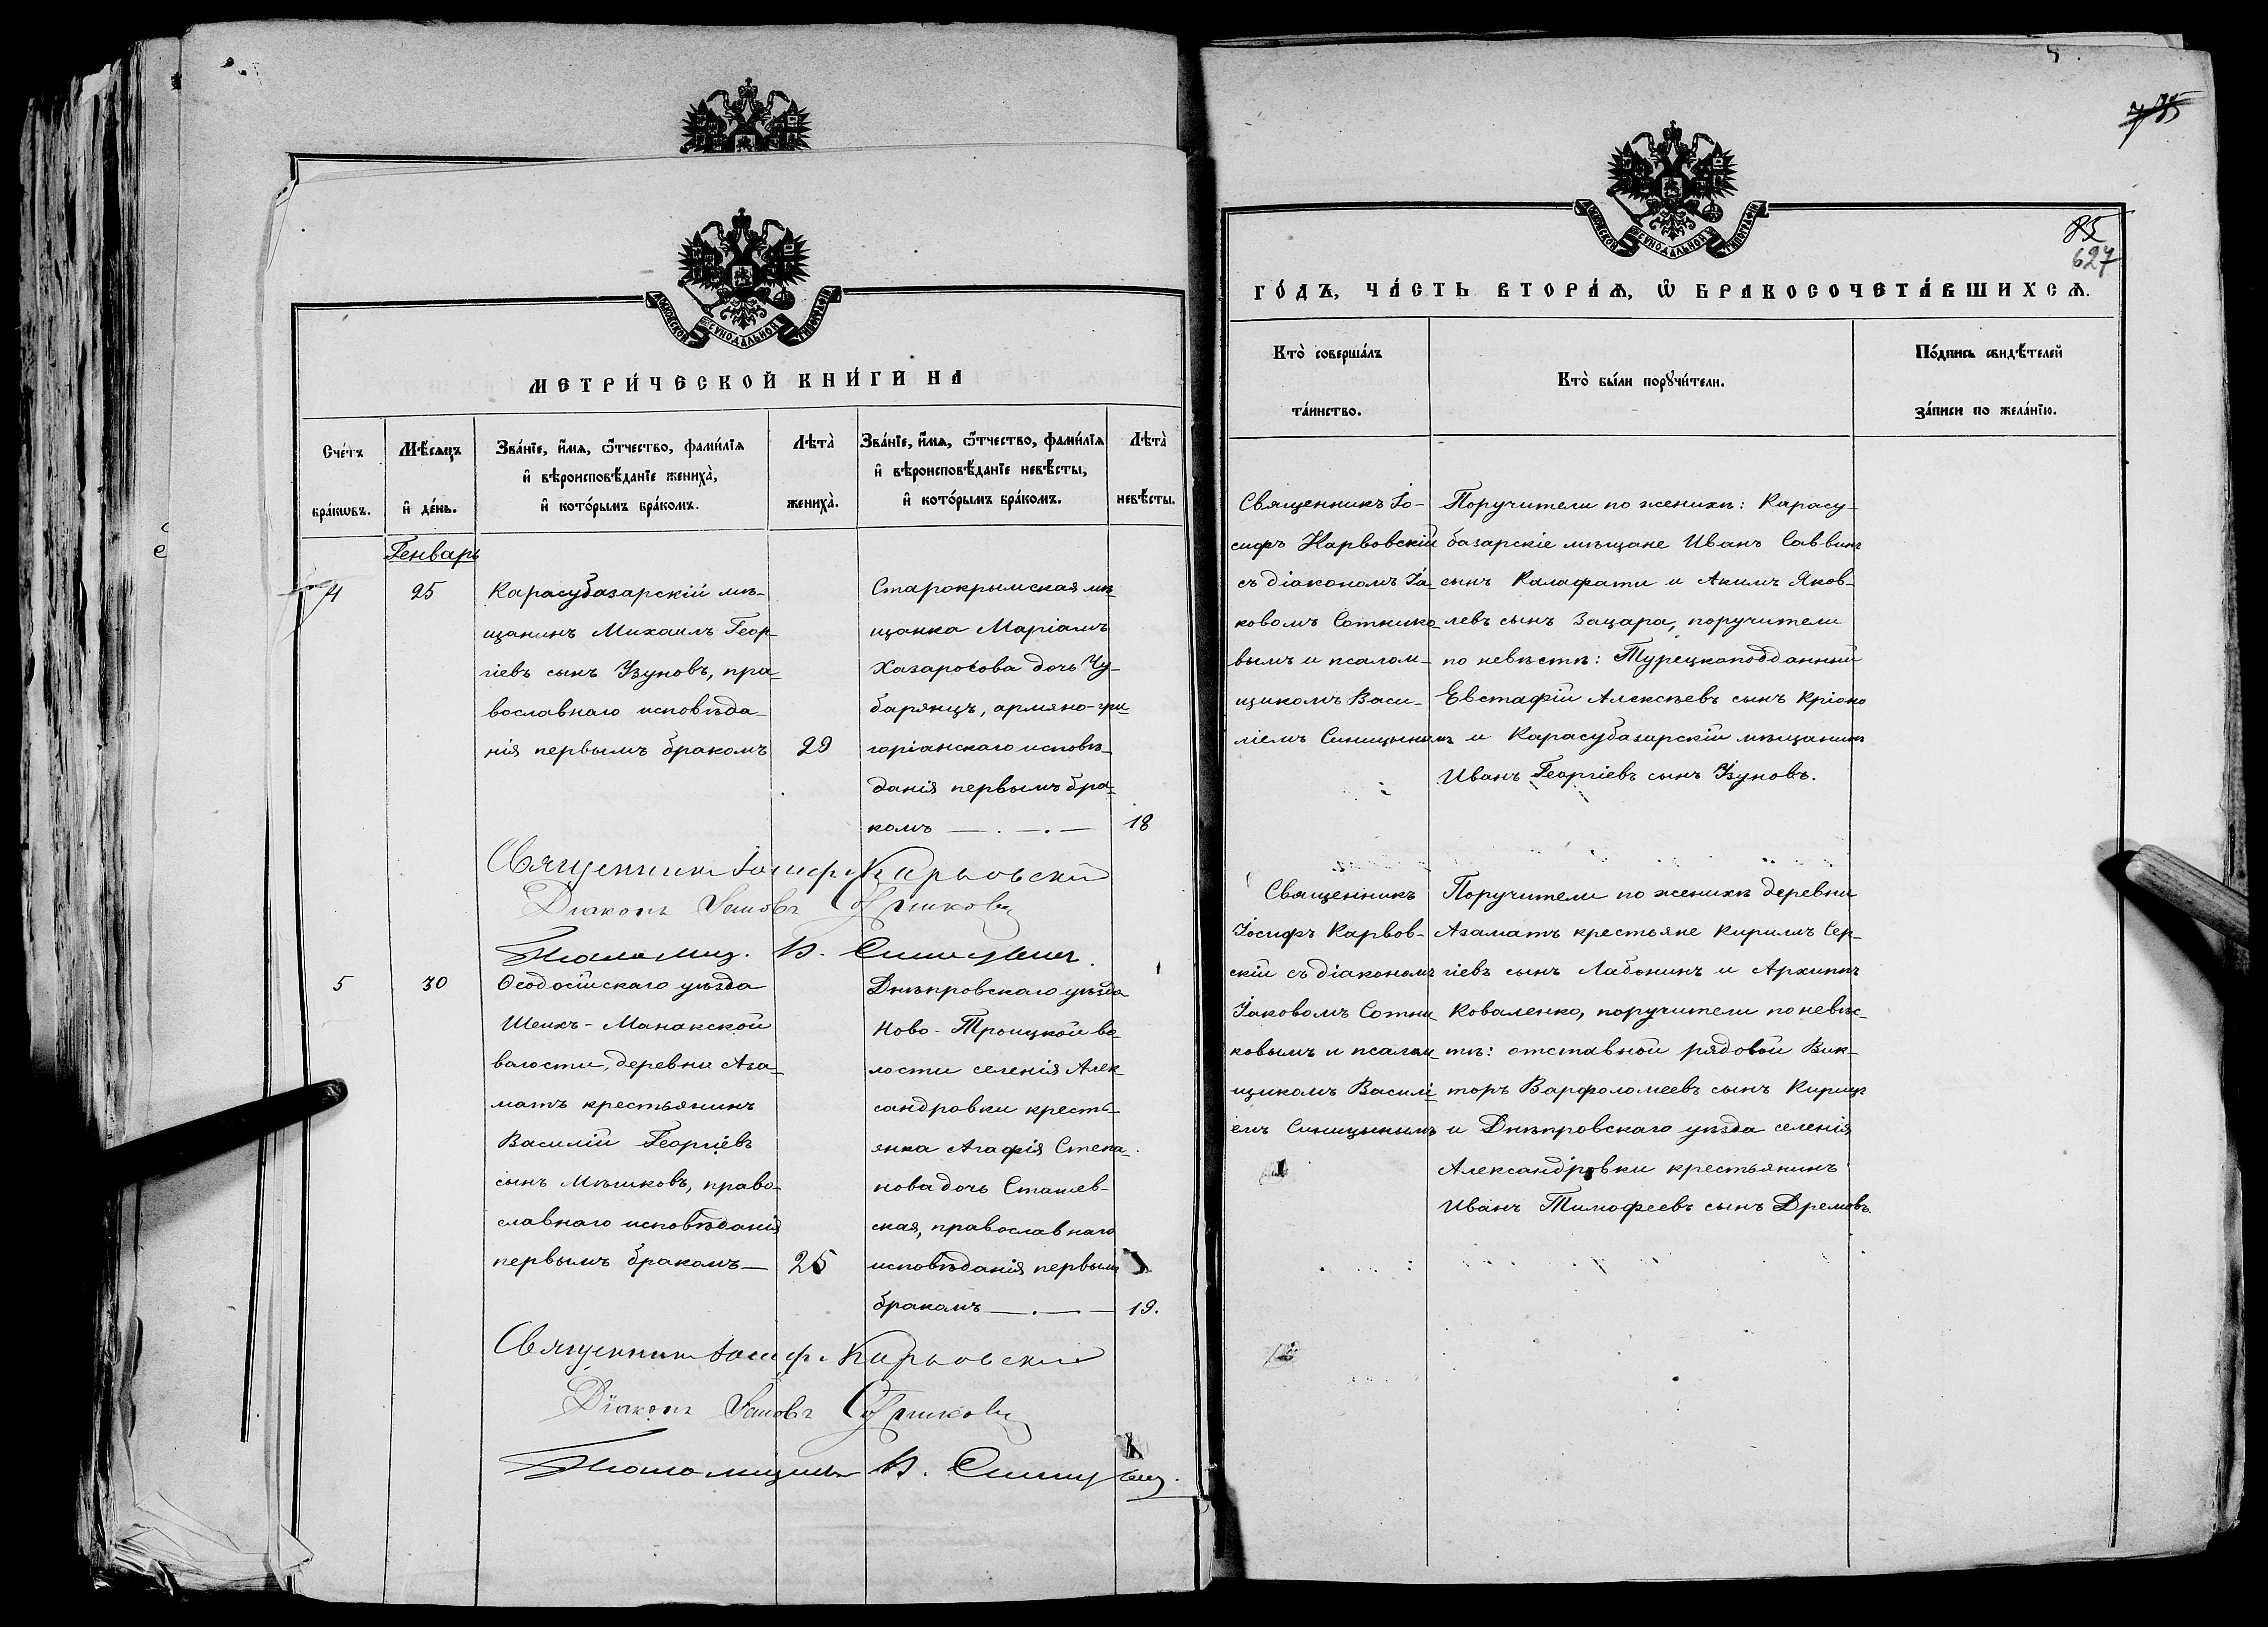 735
МОСКОВСКОЙ СѴНОДАЛЬНОЙ ТИПОГРАФІИ
МЕТРИ́ЧЕСКОЙ КНИ́ГИ НА
Сче́тъ бра́кѡвъ.
Мѣ́сяцъ и҆ де́нь.
Зва́нїе, и҆́мѧ, ѻ҆́тчество, фами́лїѧ
и҆ вѣроисповѣ́данїе жениха̀,
и҆ кото́рымъ бра́комъ.
Лѣта̀ жениха̀.
Зва́нїе, и҆́мѧ, ѻ҆́тчество, фами́лїѧ
и҆ вѣроисповѣ́данїе невѣ́сты,
и҆ кото́рымъ бра́комъ.
Лѣта̀ невѣ́сты.
Генварь
4
25
Карасубазарскій мѣ-
щанинъ Михаилъ Геор-
гіевъ сынъ Узуновъ, пра-
вославнаго исповѣда-
нія первымъ бракомъ
29
Старокрымская мѣ-
щанка Маріамъ
Хазаросова дочь Чу-
барянцъ, армяно-гри-
горіанскаго исповѣ-
данія первымъ бра-
комъ
18
Священникъ Іосифъ Карвовскій
Діаконъ Іаковъ Сотниковъ
Псаломщ. В. Синицынъ.
5
30
Ѳеодосійскаго уѣзда
Шейхъ-Манакской
волости, деревни Ага-
матъ крестьянинъ
Василій Георгіевъ
сынъ Мѣшковъ, право-
славнаго исповѣданія
первымъ бракомъ
25
Днѣпровскаго уѣзда
Ново-Троицкой во-
лости селенія Алек-
сандровки кресть-
янка Агафія Степа-
нова дочь Сташев-
ская, православнаго
исповѣданія первымъ
бракомъ
19.
Священникъ Іосифъ Карвовскій
Діаконъ Іаковъ Сотниковъ
Псаломщикъ В. Синицынъ.
МОСКОВСКОЙ СѴНОДАЛЬНОЙ ТИПОГРАФІИ
85
627
ГО́ДЪ, ЧА́СТЬ ВТОРА́Ѧ, Ѽ БРАКОСОЧЕТА́ВШИХСѦ.
Кто̀ соверша́лъ
та́инство.
Кто̀ бы́ли порꙋчи́тели.
По́дпись свидѣ́телей
за́писи по жела́нїю.
Священникъ Іо-
сифъ Карвовскій
съ діакономъ Іа-
ковомъ Сотнико-
вымъ и псалом-
щикомъ Васи-
ліемъ Синицынымъ
Поручители по женихѣ: Карасу-
базарскіе мѣщане Иванъ Саввинъ
сынъ Калафати и Акимъ Яков-
левъ сынъ Зацара, поручители
по невѣстѣ: Турецкоподданный
Евстафій Алексѣевъ сынъ Кріоно
и Карасубазарскій мѣщанинъ
Иванъ Георгіевъ сынъ Узуновъ.
Священникъ
Іосифъ Карвов-
скій съ діакономъ
Іаковомъ Сотни-
ковымъ и псалом-
щикомъ Василі-
емъ Синицынымъ
Поручители по женихѣ деревни
Агаматъ крестьяне Кириллъ Сер-
гіевъ сынъ Лабонинъ и Архиппъ
Коваленко, поручители по невѣс-
тѣ: отставной рядовой Вик-
торъ Варфоломеевъ сынъ Кирицъ
и Днѣпровскаго уѣзда селенія
Александровки крестьянинъ
Иванъ Тимофеевъ сынъ Дремовъ.